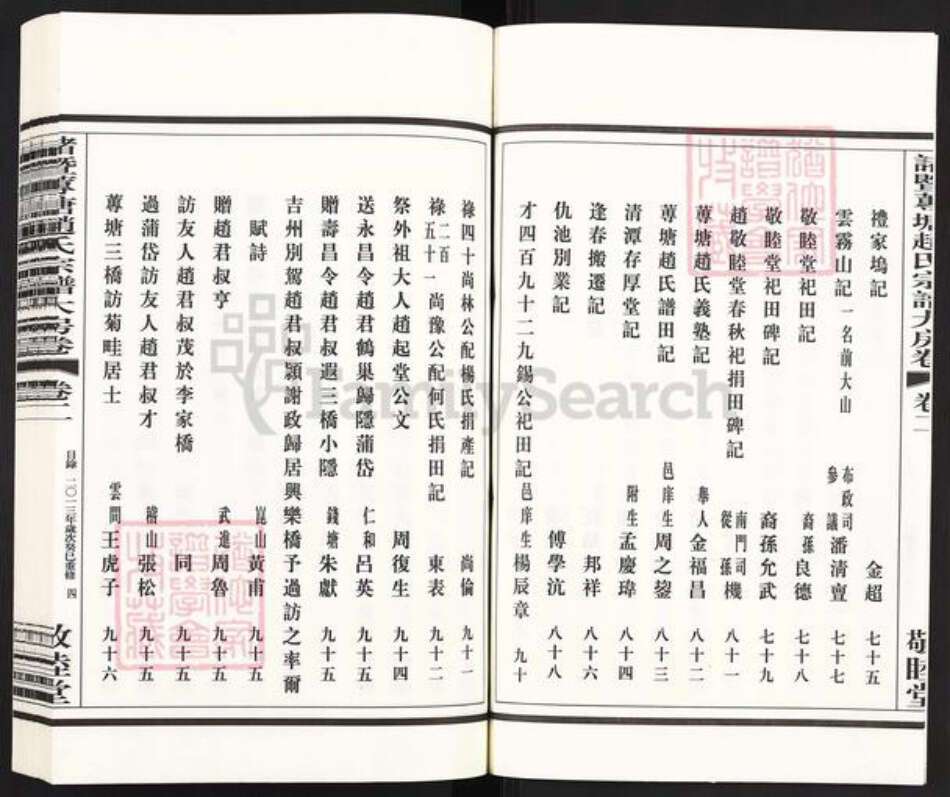 諸暨蓴塘趙氏宗譜大房卷 卷二
敬睦堂
禮家塢記 金超 七十五
雲霧山記 一名前大山 布政司參議潘清亶 七十七
敬睦堂祀田記 裔孫良德 七十八
敬睦堂祀田碑記 裔孫允武 七十九
趙敬睦堂春秋祀捐田碑記 南門司從孫機 八十一
蓴塘趙氏義塾記 舉人金福昌 八十二
蓴塘趙氏譜田記 邑庠生周之鋆 八十三
清潭存厚堂記 附生孟慶瑋 八十四
逢春搬遷記 邦祥 八十六
仇池別業記 傅學沆 八十八
才四百九十二九錫公祀田記 邑庠生楊辰章 九十
祿四十尚林公配楊氏捐產記 尚倫 九十一
祿二百五十一尚豫公配何氏捐田記 東表 九十二
祭外祖大人趙起堂公文 周復生 九十四
送永昌令趙君鶴巢歸隱蒲岱 仁和呂英 九十五
贈壽昌令趙君叔遐三橋小隱 錢塘朱獻 九十五
吉州別駕趙君叔穎謝政歸居興樂橋予過訪之率爾
賦詩 崑山黃甫 九十五
贈趙君叔亨 武進周魯 九十五
訪友人趙君叔茂於李家橋 同 九十五
過蒲岱訪友人趙君叔才 稽山張松 九十五
蓴塘三橋訪菊畦居士 雲間王虎子 九十六
諸暨蓴塘趙氏宗譜大房卷 卷二
目錄 二〇一三年歲次癸巳重修 四
敬睦堂
FamilySearch